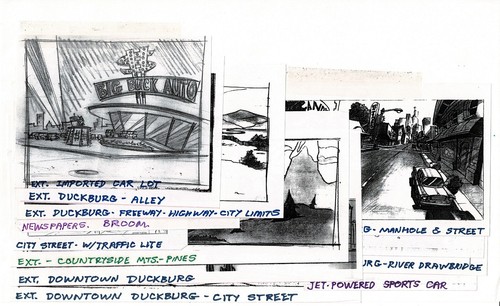 BIG BUCK AUTO
EXT. IMPORTED CAR LOT
EXT. DUCKBURG - ALLEY
EXT. DUCKBURG - FREEWAY - HIGHWAY - CITY LIMITS
NEWSPAPERS. BROOM.
G - MANHOLE & STREET
CITY STREET - W/TRAFFIC LITE
EXT. - COUNTRYSIDE MTS. - PINES
URG - RIVER DRAWBRIDGE
EXT. DOWNTOWN DUCKBURG
JET-POWERED SPORTS CAR
EXT. DOWNTOWN DUCKBURG - CITY STREET